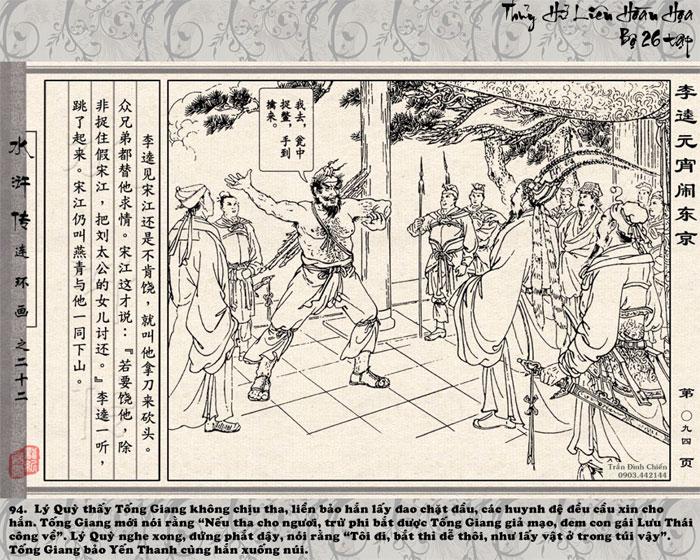 Thủy Hử Liên Hoàn Họa
Bộ 26 tập
李逵元宵闹东京
第〇九四页
我去，瓮中
捉鳖，手到
擒来。
李逵见宋江还是不肯饶，就叫他拿刀来砍头。
众兄弟都替他求情。宋江这才说：『若要饶他，除
非捉住假宋江，把刘太公的女儿讨还。』李逵一听，
跳了起来。宋江仍叫燕青与他一同下山。
水浒传连环画之二十二
Trần Đình Chiến
0903.442144
94. Lý Quỳ thấy Tống Giang không chịu tha, liền bảo hắn lấy đao chặt đầu, các huynh đệ đều cầu xin cho
hắn. Tống Giang mới nói rằng “Nếu tha cho ngươi, trừ phi bắt được Tống Giang giả mạo, đem con gái Lưu Thái
công về”. Lý Quỳ nghe xong, đứng phắt dậy, nói rằng “Tôi đi, bắt thì dễ thôi, như lấy vật ở trong túi vậy”.
Tống Giang bảo Yến Thanh cùng hắn xuống núi.